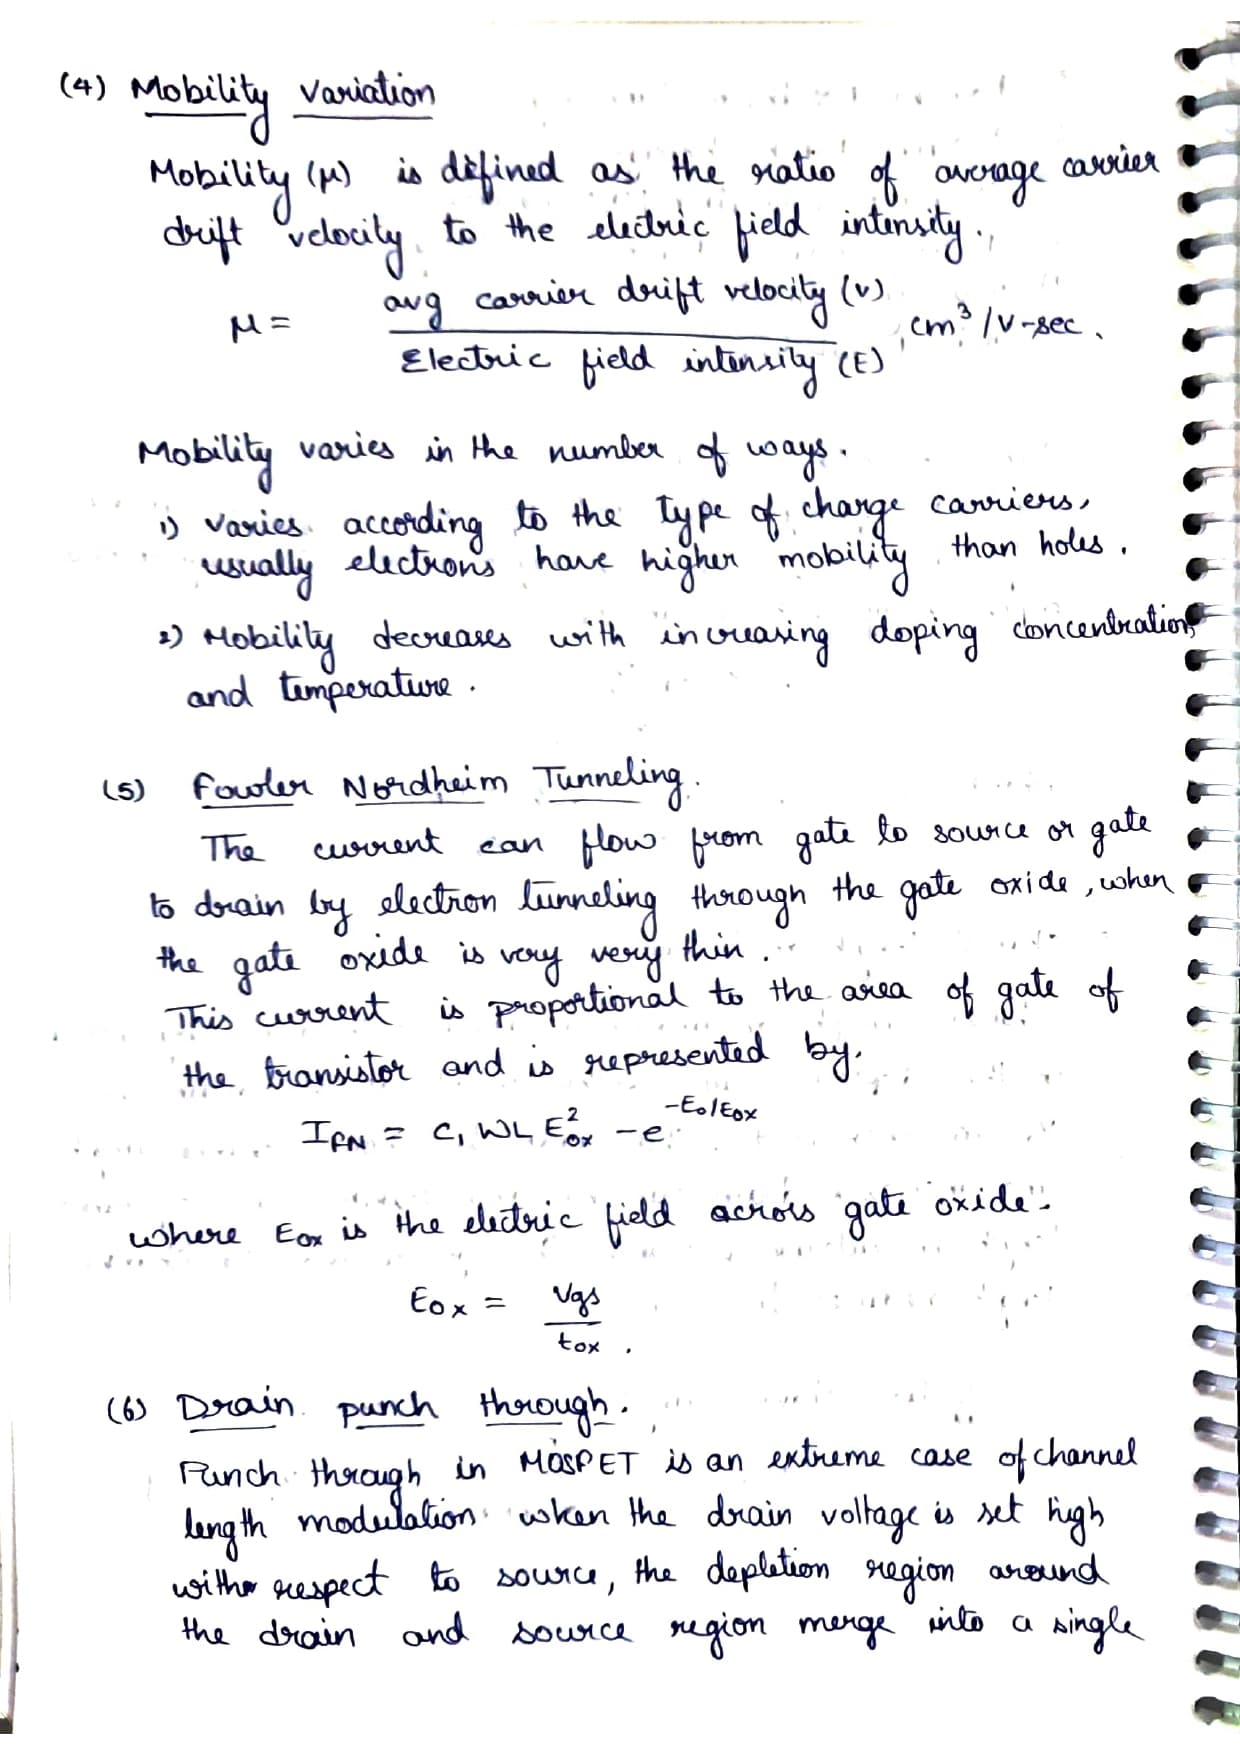 (4) Mobility variation
Mobility (μ) is defined as the ratio of average carrier
drift velocity to the electric field intensity.
μ = avg carrier drift velocity (v) / Electric field intensity (E) , cm³/V-sec.
Mobility varies in the number of ways.
1) varies according to the type of charge carriers,
usually electrons have higher mobility than holes.
2) Mobility decreases with increasing doping concentration
and temperature.
(5) Fowler Nordheim Tunneling.
The current can flow from gate to source or gate
to drain by electron tunneling through the gate oxide, when
the gate oxide is very very thin.
This current is proportional to the area of gate of
the transistor and is represented by.
I_FN = C₁ WL E²ox - e^-E₀/Eox
where Eox is the electric field across gate oxide.
Eox = Vgs / tox .
(6) Drain punch through.
Punch through in MOSPET is an extreme case of channel
length modulation when the drain voltage is set high
with respect to source, the depletion region around
the drain and source region merge into a single